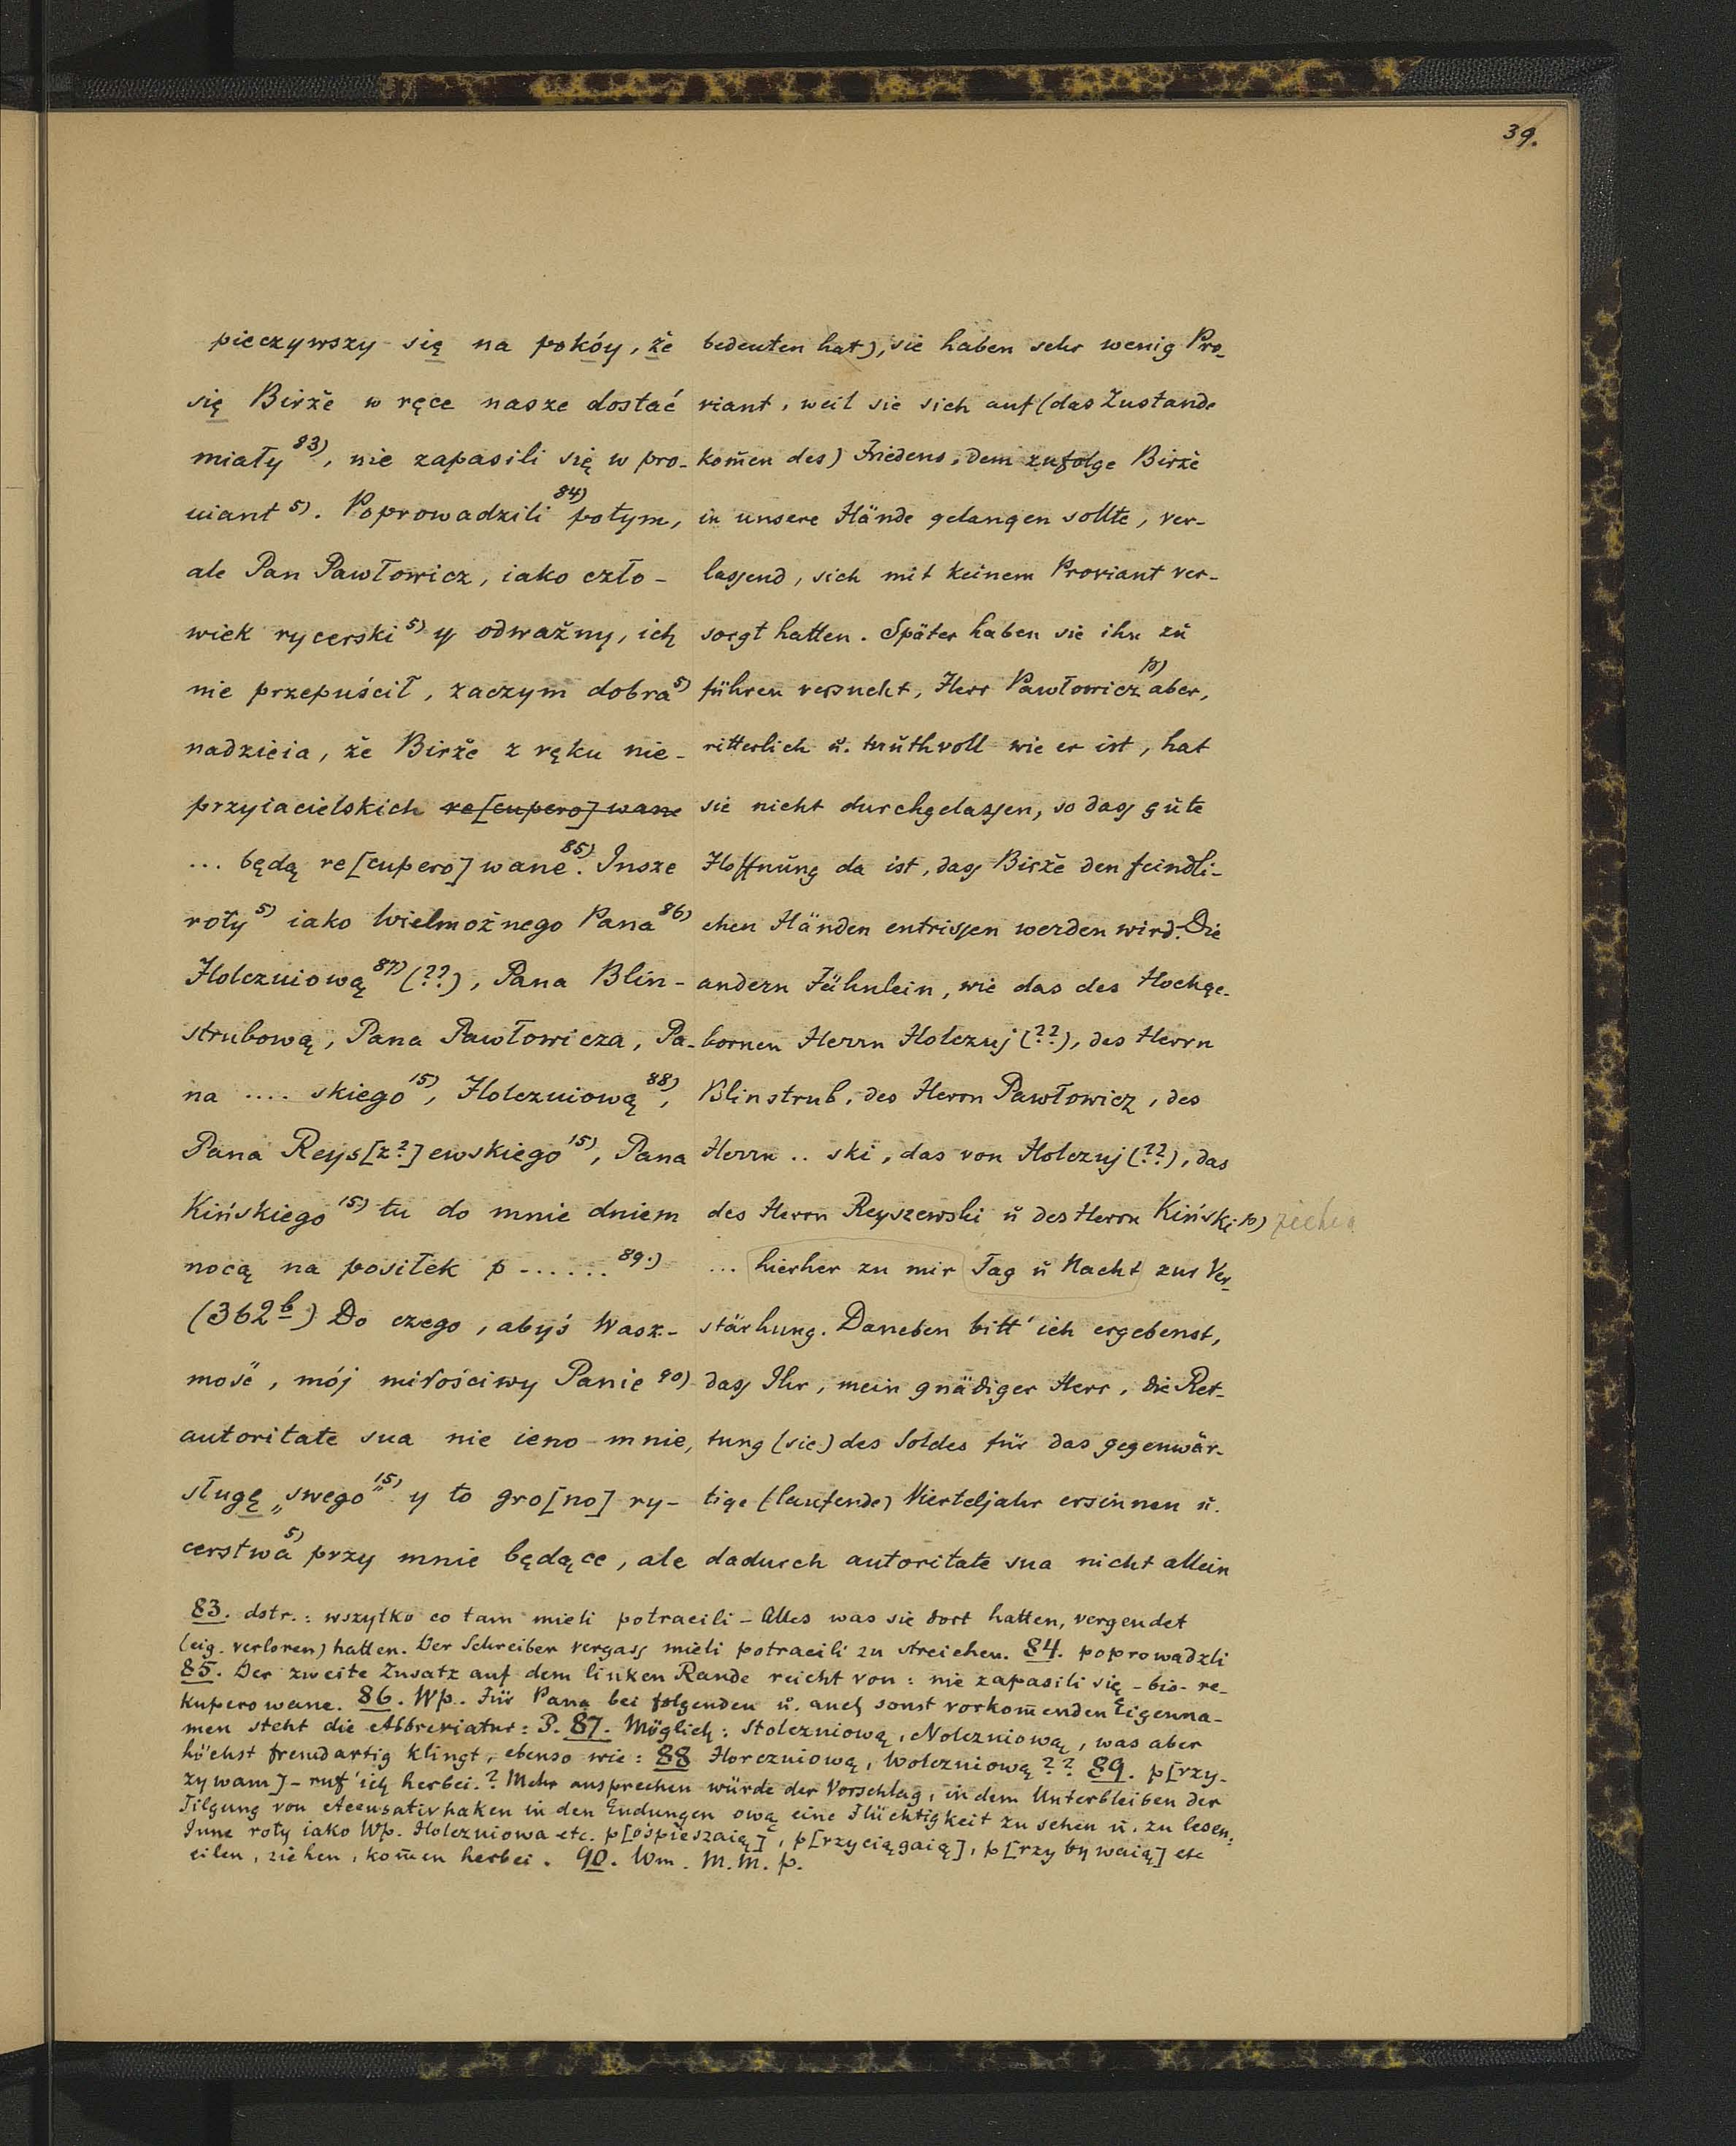 39.
pieczywszy się na pokóy, że
się Birże w ręce nasze dostać
miały 83), nie zapasili się w pro-
uiant 5). Poprowadzili 84) potym,
ale Pan Pawłowicz, iako czło-
wiek rycerski 5) y odważny, ich
nie przepuścił, zaczym dobra 5)
nadzieia, że Birże z ręku nie-
przyiacielskich re[cupero]wane
... będą re[cupero]wane 85). Insze
roty 5) iako Wielmożnego Pana 86)
Holczuiową 87) (??), Pana Blin-
strubową, Pana Pawłowicza, Pa-
na .... skiego 15), Holczuiową 88),
Pana Reys[z?]ewskiego 15), Pana
Kińskiego 15) tu do mnie dniem
nocą na positek p ...... 89.)
(362b) Do czego, abyś Wasz-
mość, mój miłościwy Panie 90)
autoritate sua nie ieno mnie,
sługę „swego" 15) y to gro[no] ry-
cerstwa 5) przy mnie będące, ale
bedeuten hat), sie haben sehr wenig Pro-
viant, weil sie sich auf (das Zustande
kom̄en des) Friedens, dem zufolge Birże
in unsere Hände gelangen sollte, ver-
lassend, sich mit keinem Proviant ver-
sorgt hatten. Später haben sie ihn zŭ
führen versucht, Herr Pawłowicz p) aber,
ritterlich ŭ. mŭthvoll wie er ist, hat
sie nicht durchgelassen, so dass gŭte
Hoffnŭng da ist, dass Birże den feindli-
chen Händen entrissen werden wird. Die
andern Fähnlein, wie das des Hochge-
bornen Herrn Holczuj (??), des Herrn
Blinstrub, des Herrn Pawłowicz, des
Herrn .. ski, das von Holczuj (??), das
des Herrn Reyszewski ŭ des Herrn Kiński p) ziehen
... hierher zu mir Tag ŭ Nacht zur Ver-
stärkung. Daneben bitt' ich ergebenst,
dass Ihr, mein gnädiger Herr, die Ret-
tung (sic) des Soldes für das gegenwär-
tige (laufende) Vierteljahr ersinnen ŭ.
dadurch autoritate sua nicht allein
83. dstr.: wszytko co tam mieli potracili - Alles was sie dort hatten, vergendet
(eig. verloren) hatten. Der Schreiber vergass mieli potracili zu streichen. 84. poprowadzli
85. Der zweite Zusatz auf dem linken Rande reicht von: nie zapasili się - bis - re-
kuperowane. 86. Wp. Für Pana bei folgenden ŭ. auch sonst vorkom̄enden Eigenna-
men steht die Abbreviatur: P. 87. Möglich: Stolczniową, Nolczniową, was aber
höchst fremdartig klingt, ebenso wie: 88 Horczniową, Wolczniową?? 89. p[rzy-
zywam] - ruf' ich herbei.? Mehr ansprechen würde der Vorschlag, in dem Unterbleiben der
Tilgung von Accusativhaken in den Endungen ową eine Flüchtigkeit zu sehen ŭ. zu lesen:
Inne roty iako Wp. Holczuiowa etc. p[ośpieszaią], p[rzyciągaią], p[rzybywaią] etc
eilen, ziehen, kom̄en herbei. 90. Wm. M. M. p.